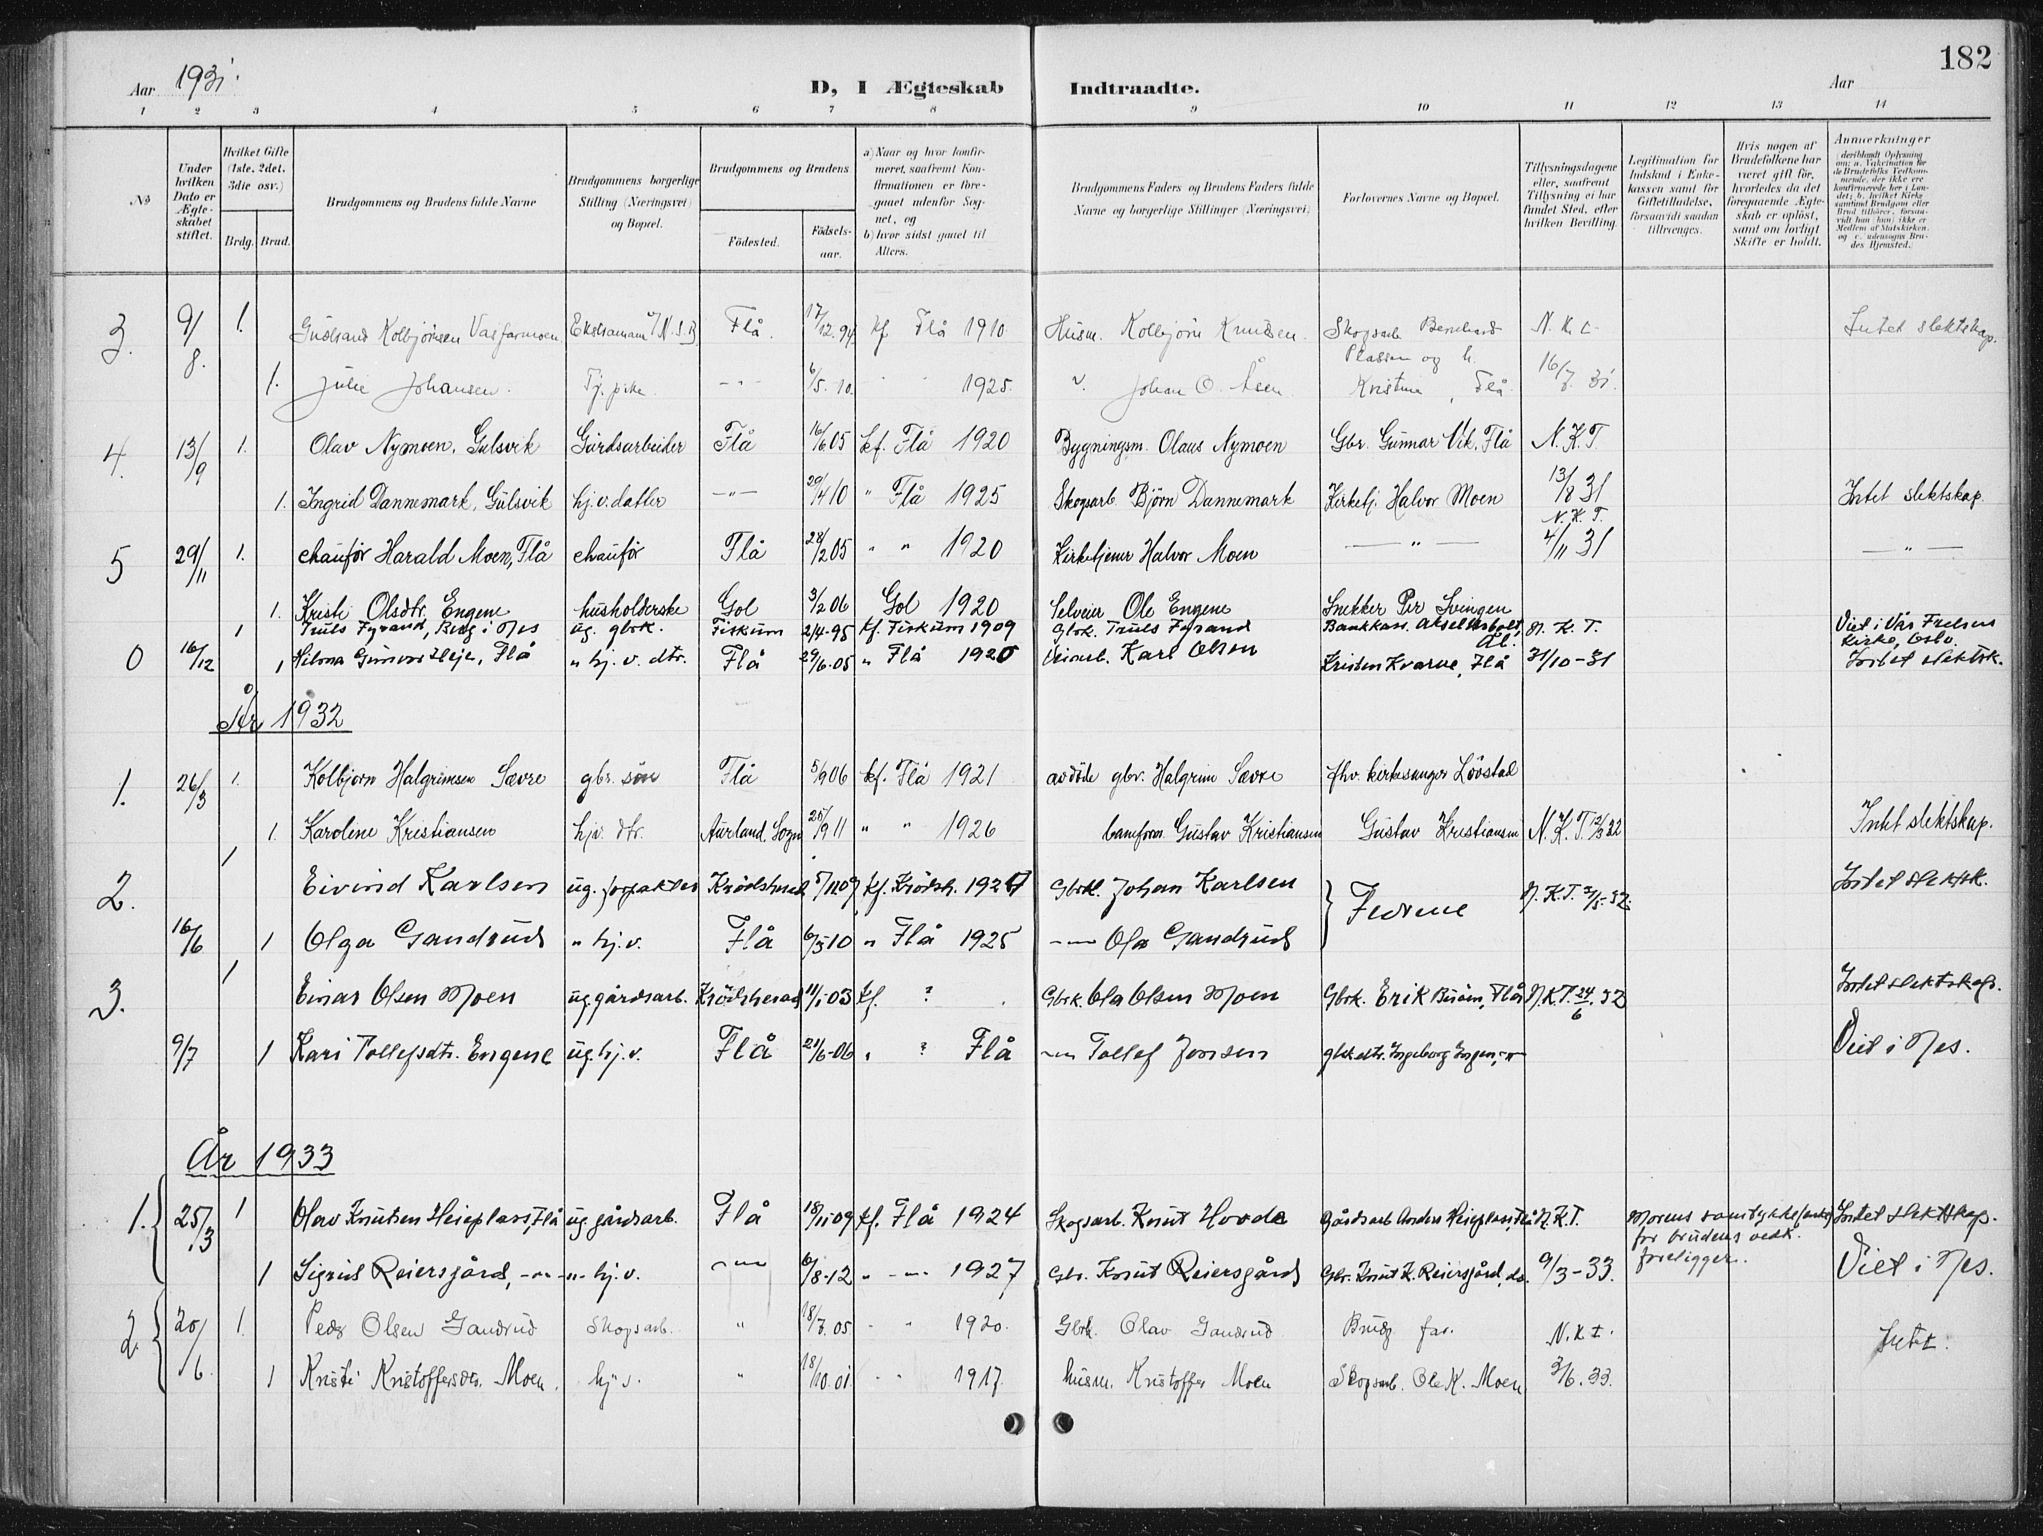 182
Aar 1931.
D, I Ægteskab Indtraadte.
Aar
1 2 3 4 5 6 7 8 9 10 11 12 13 14
No
Under hvilken Dato er Ægteskabet stiftet.
Hvilket Gifte (1ste. 2det. 3die osv.)
Brdg. Brud.
Brudgommens og Brudens fulde Navne
Brudgommens borgerlige Stilling (Næringsvei) og Bopæl.
Brudgommens og Brudens
Fødested.
Fødsels-aar.
a) Naar og hvor konfirmeret, saafremt Konfirmationen er foregaaet udenfor Sognet, og
b) hvor sidst gaaet til Alters.
Brudgommens Faders og Brudens Faders fulde Navne og borgerlige Stillinger (Næringsvei)
Forlovernes Navne og Bopæl.
Tillysningsdagene eller, saafremt Tillysning ei har fundet Sted, efter hvilken Bevilling.
Legitimation for Indskud i Enkekassen samt for Giftetilladelse, forsaavidt saadan tiltrænges.
Hvis nogen af Brudefolkene har været gift før, hvorledes da det foregaaende Ægteskab er opløst, samt om lovligt Skifte er holdt.
Anmerkninger
3. 9/8. 1. Kolbjørnsen Vasfarmoen Flå. 17/12.94 kf Flå 1910 Husm. Kolbjørn Knudsen. Skogsarb. Bernhard N.K.t. Intet slektskap.
Plassen og h.
1. Julie Johansen. Tj. pike -"- 6/5.10. 1925. Johan O. Åsen Kristine, Flå. 16/7 31
4. 13/9 1. Olav Nymoen, Gulsvik Gårdsarbeider Flå 16/6 05 kf. Flå 1920 Bygningsm. Olaus Nymoen Gbr. Gunnar Vik, Flå N. K. T.
1. Ingrid Dannemark, Gulsvik hj.v. datter -"- 29/4 10 " Flå 1925 Skogsarb Bjørn Dannemark Kirketj. Halvor Moen 13/8 31 Intet slektskap.
N. K. T.
5 29/11 1. chauför Harald Moen, Flå chauför Flå 28/2 05 " " 1920 Kirketjener Halvor Moen -"- 4/11 31 -"-
1. Kristi Olsdtr. Engene husholderske Gol 3/2 06 Gol 1920 Selveier Ole Engene Snekker Per Svingen
0 16/12 1 Truls Fyrand, Berg i Nes ug. gbrk. Fiskum 2/4-95 kf. Fiskum 1909 Gbrk. Truls Fyrand Bankkass. N. K. T. Viet i Vår Frelsers Kirke, Oslo.
Ål.
1 Flå " hj. v. dtr. Flå 29/6-05 " Flå 1920 Karl Olsen Kristen Kvarne, Flå 31/10-31 Intet slektsk.
År 1932
1. 26/3 1. Kolbjørn Halgrimsen Sævre gbr. søn Flå 5/9 06 kf. Flå 1921 avdöde gbr. Halgrim Sævre fhv. kirkesanger Lövstad
1. Karoline Kristiansen hjv. dtr. Aurland. Sogn 25/9 11 " " 1926 banform Gustav Kristiansen Gustav Kristiansen N. K. T. 12/3 32 Intet slektskap.
2. 1 Eivind Karlsen ug. forpakter Krödsherad 5/12 09 kf. Krödsh. 1924 Gbrk. Johan Karlsen } Fedrene N. K. T. 2/5-32. Intet slektsk.
16/6 1 Olga Gandrud " hj.v. Flå 6/5 10 " Flå 1925 -"- Ola Gandrud
3. 1 Einar Olsen Moen ug gårdsarb. Krödsherad 11/1 03 kf. ? Gbrk. Ola Olsen Moen Gbrk. Erik Flå N.K.T. 24/6.32 Intet slektskap.
9/7 1 Kari Tollefsdtr. Engene ug. hj.v. Flå 21/6-06 " ? Flå -"- Tollef Jensen gbkdtr. Ingeborg Engen, -"- Viet i Nes.
År 1933
1. { 25/3 1 Olav Knutsen Heieplass, Flå ug gårdsarb. Flå 18/11 09 kf. Flå 1924 Skogsarb. Knut Hovde Gårdsarb Anders Heieplass, Flå N.K.T. Morens samtykke for brudens vedk. foreligger. Intet slektskap.
1 Sigrid Reiersgård, -"- " hj.v. -"- 6/8-12 " -"- 1927 Gbr. Knut Reiersgård Gbr. Knut K. Reiersgård, ds. 9/3-33. Viet i Nes.
2 { 20/6 1. Peder Olsen Gandrud Skogsarb. " 18/7.05 " " 1920. Gbrk. Olav Gandrud Brudg far. N.K.t. Intet.
1 Kristi Kristoffersdtr. Moen. hj v. " 18/10.01 " " 1917. husm. Kristoffer Moen Skogsarb. Ole K. Moen. 3/6.33.